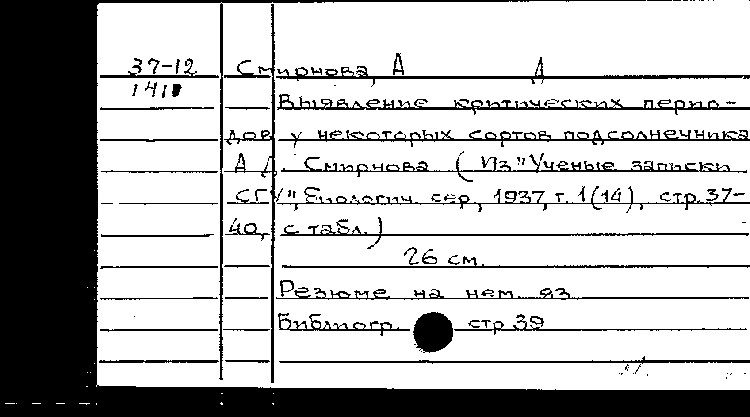 37-12 Смирнова, А Д
141
Выявление критических перио-
дов у некоторых сортов подсолнечника
А Д. Смирнова (Из "Ученые записки
СГУ", Биологич. сер., 1937, т. 1(14), стр. 37-
40, с табл.)
26 см.
Резюме на нем. яз
Библиогр. стр 39